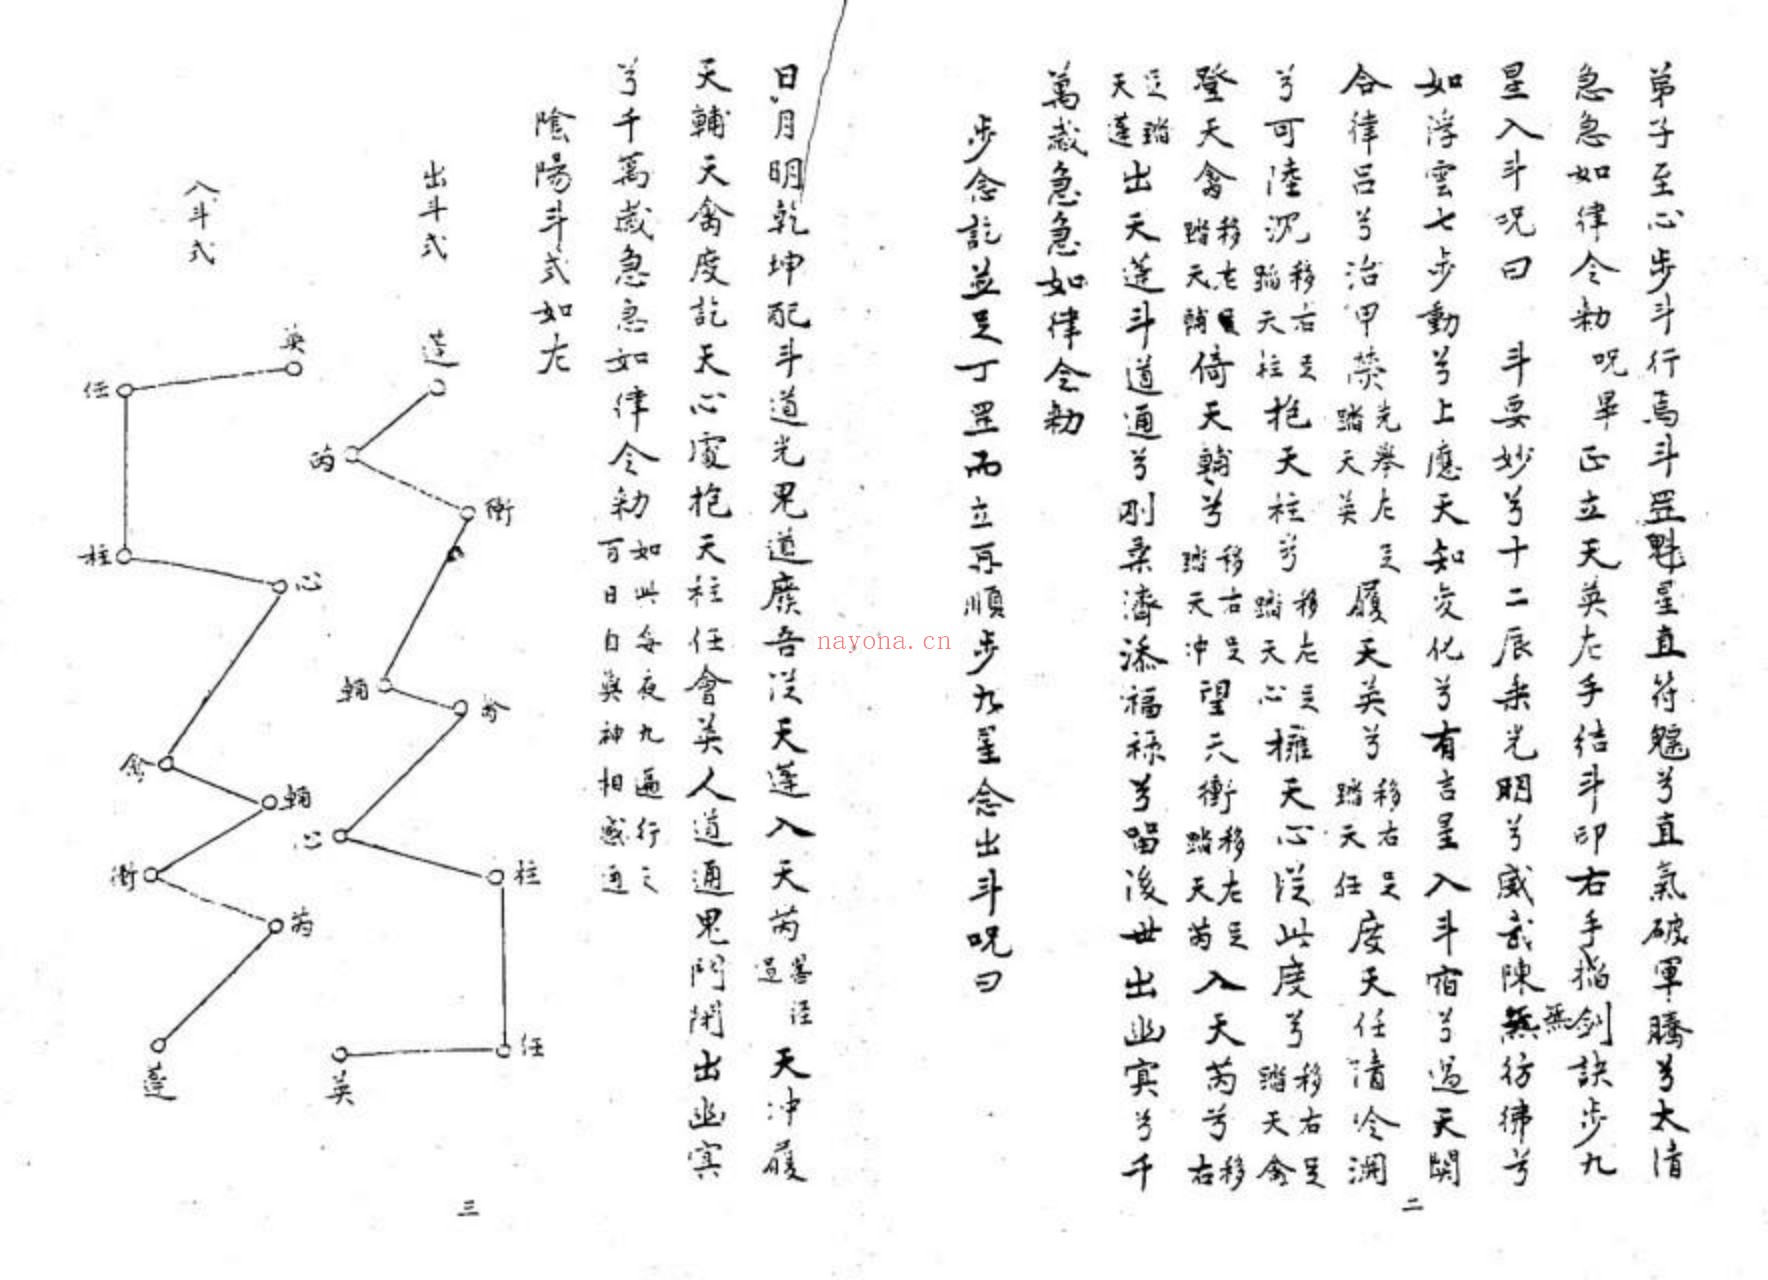 弟子至心步斗行焉斗罡魁星直符魒兮直氣破軍騰兮太清
急急如律令勑呪畢正立天英左手結斗印右手掐劍訣步九
星入斗呪曰 斗要妙兮十二辰乘光明兮威武陳無無彷彿兮
如浮雲七步動兮上應天知变化兮有言星入斗宿兮過天関
合律呂兮治甲禁先舉左足踏天英履天英兮移右足踏天任度天任清冷淵
兮可陸沉移右足蹈天柱抱天柱兮移左足踏天心擁天心從此度兮移右足踏天禽
登天禽移左足踏天輔倚天輔兮移右足踏天冲望天衝移左足踏天芮入天芮兮移右
足踏天蓬出天蓬斗道通兮刚柔濟添福祿兮留後世出幽冥兮千
萬歲急急如律令勑
步念訖並足丁罡而立再順步九星念出斗呪曰
二
日月明乾坤配斗道光鬼道廢吾從天蓬入天芮天冲履
天輔天禽度訖天心處抱天柱任會英人道通鬼門閉出幽冥
兮千萬歲急急如律令勑如此每夜九遍行之百日自與神相感通
陰陽斗式如左
出斗式
蓬
芮
衝
輔
禽
心
柱
任
英
入斗式
英
任
柱
心
禽
輔
衝
芮
蓬
三
nayona.cn